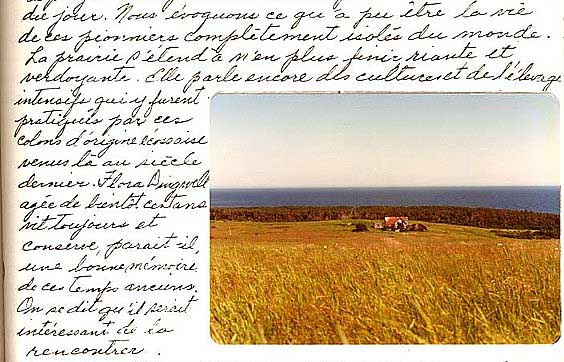 du jour. Nous évoquons ce qu'a pu être la vie
de ces pionniers complètement isolés du monde.
La prairie s'étend à n'en plus finir riante et
verdoyante. Elle parle encore des cultures et de l'élevage
intensifs qui y furent
pratiqués par ces
colons d'origine écossaise
venus là au siècle
dernier. Flora Dingwell
agée de bientôt cent ans
vit toujours et
conserve, paraît-il,
une bonne mémoire
de ces temps anciens.
On se dit qu'il serait
intéressant de la
rencontrer.